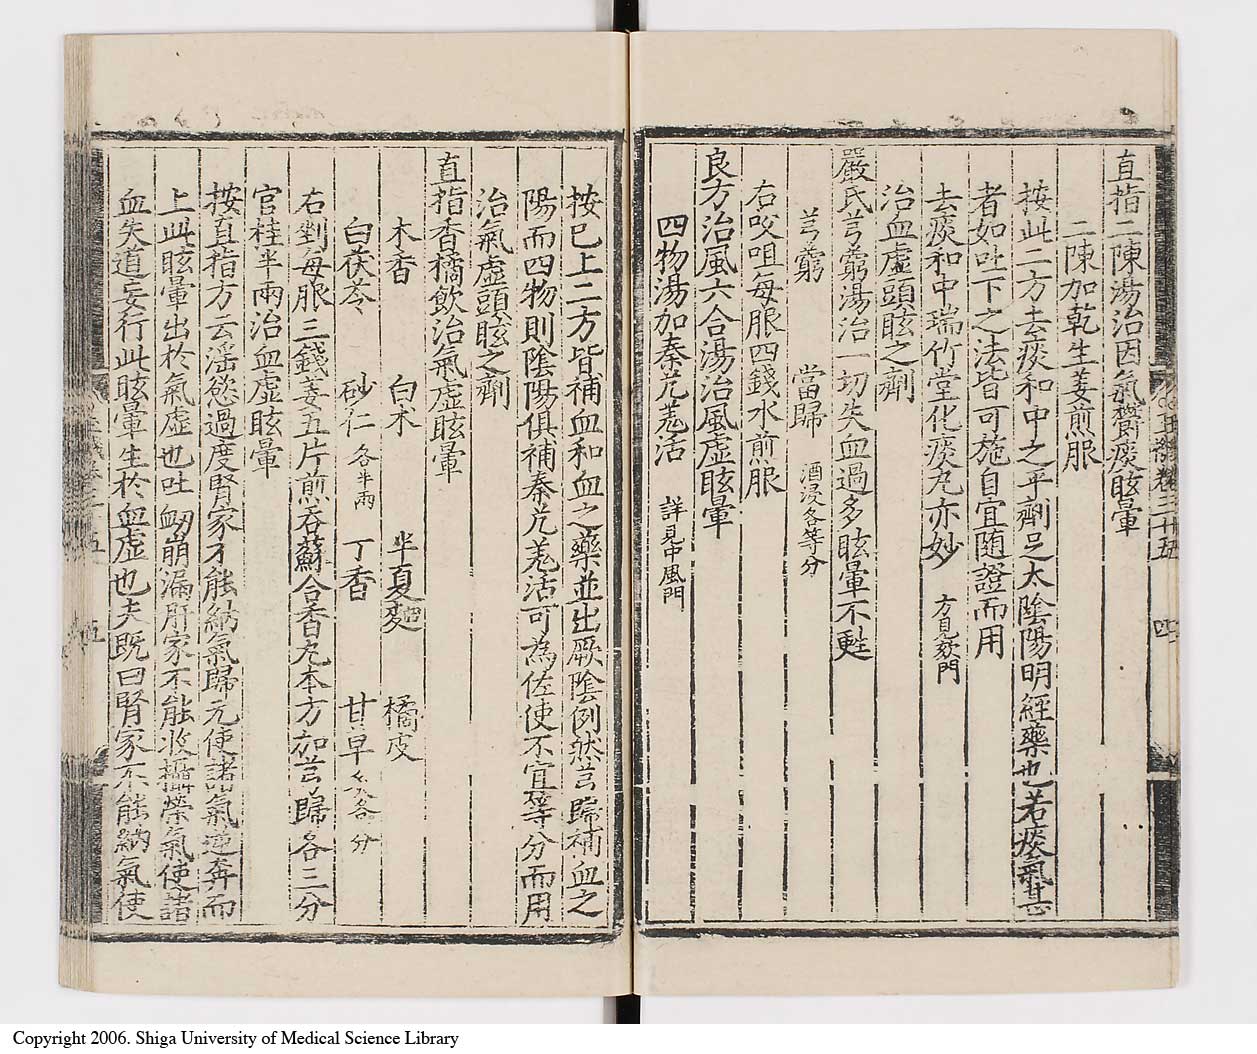 直指二陳湯治因氣欝痰眩暈
二陳加乾生姜煎服
按此二方去痰和中之平劑足太陰陽明經藥也若痰氣甚
者如吐下之法皆可施自宜随證而用
去痰和中瑞竹堂化痰丸亦妙 方見痰門
治血虛頭眩之劑
嚴氏芎藭湯治一切失血過多眩暈不甦
芎藭 當歸 酒浸各等分
右㕮咀每服四錢水煎服
良方治風六合湯治風虛眩暈
四物湯加秦艽羗活 詳見中風門
按已上二方皆補血和血之藥並出厥陰例然芎歸補血之
陽而四物則陰陽俱補秦艽羗活可為佐使不宜等分而用
治氣虛頭眩之劑
直指香橘飲治氣虛眩暈
木香 白术 半夏麴 橘皮
白茯苓 砂仁 各半兩 丁香 甘草 炙各 分
右剉每服三錢姜五片煎吞蘇合香丸本方加芎歸各三分
官桂半兩治血虛眩暈
按直指方云淫慾過度腎家不能納氣歸元使諸氣逆奔而
上此眩暈出於氣虛也吐衂崩漏肝家不能收攝榮氣使諸
血失道妄行此眩暈生於血虛也夫既曰腎家不能納氣使
Copyright 2006. Shiga University of Medical Science Library